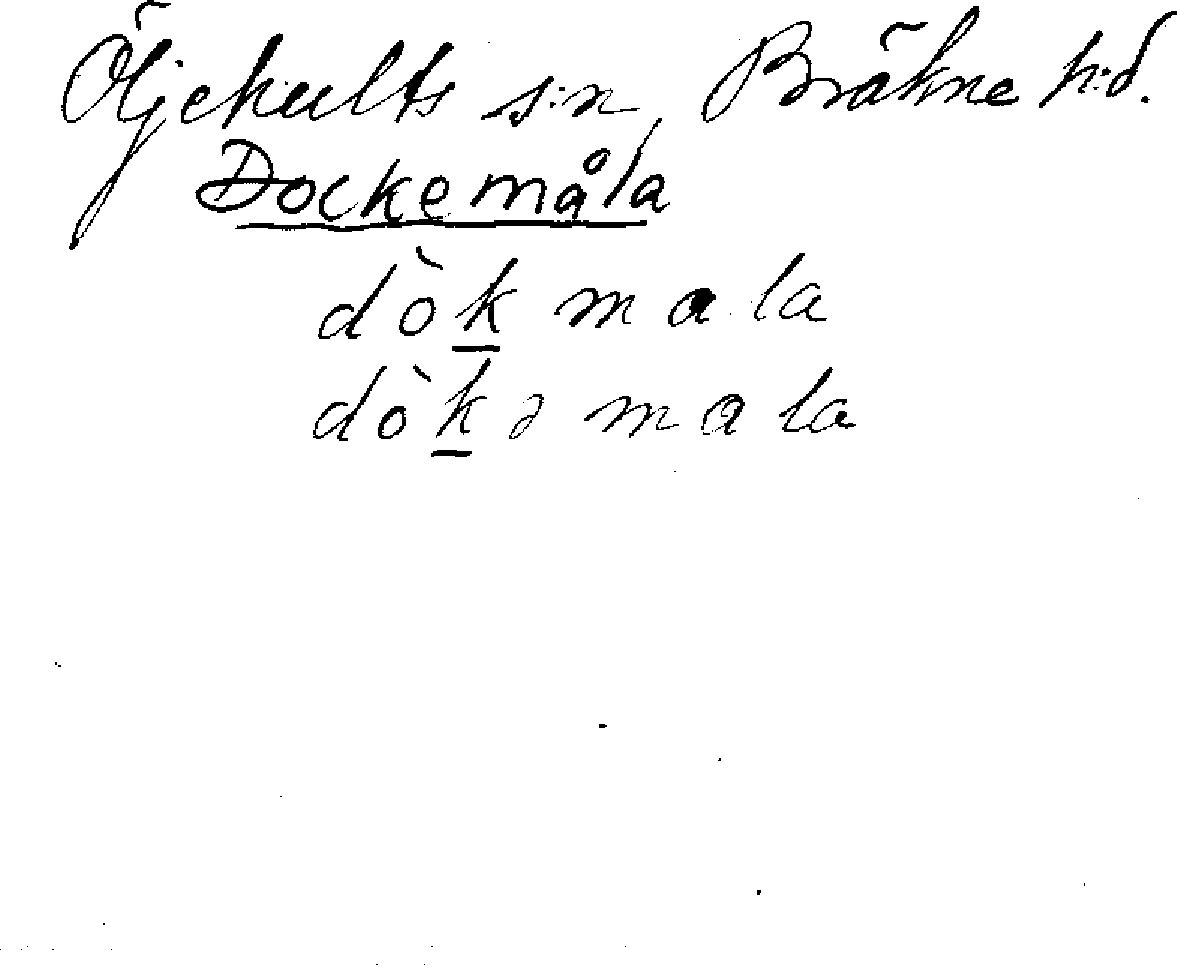 Öljehults s:n, Bräkne h:d.
Dockemåla
dòk mala
dòkə mala